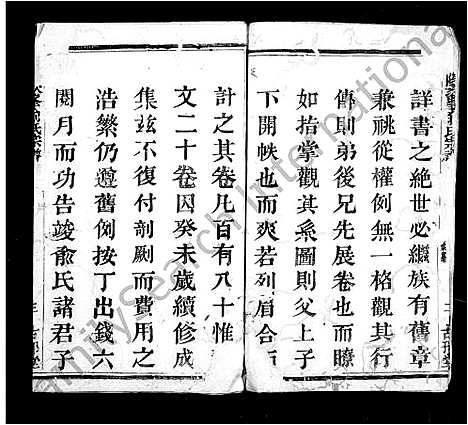 詳書之絕世必繼族有舊章
兼祧從權例無一格觀其行
傳則弟後兄先展卷也而瞭
如指掌觀其系圖則父上子
下開帙也而爽若列眉合而
計之其卷凡百有八十惟
文二十卷因癸未歲續修成
集茲不復付剞劂而費用之
浩繁仍遵舊例按丁出錢六
閱月而功告竣俞氏諸君子
FamilySearch International